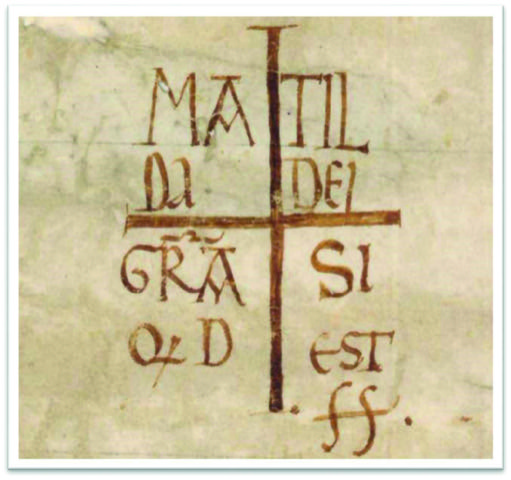 MA TIL
DA DEI
GR̃Ã SI
QD EST
.ſſ.